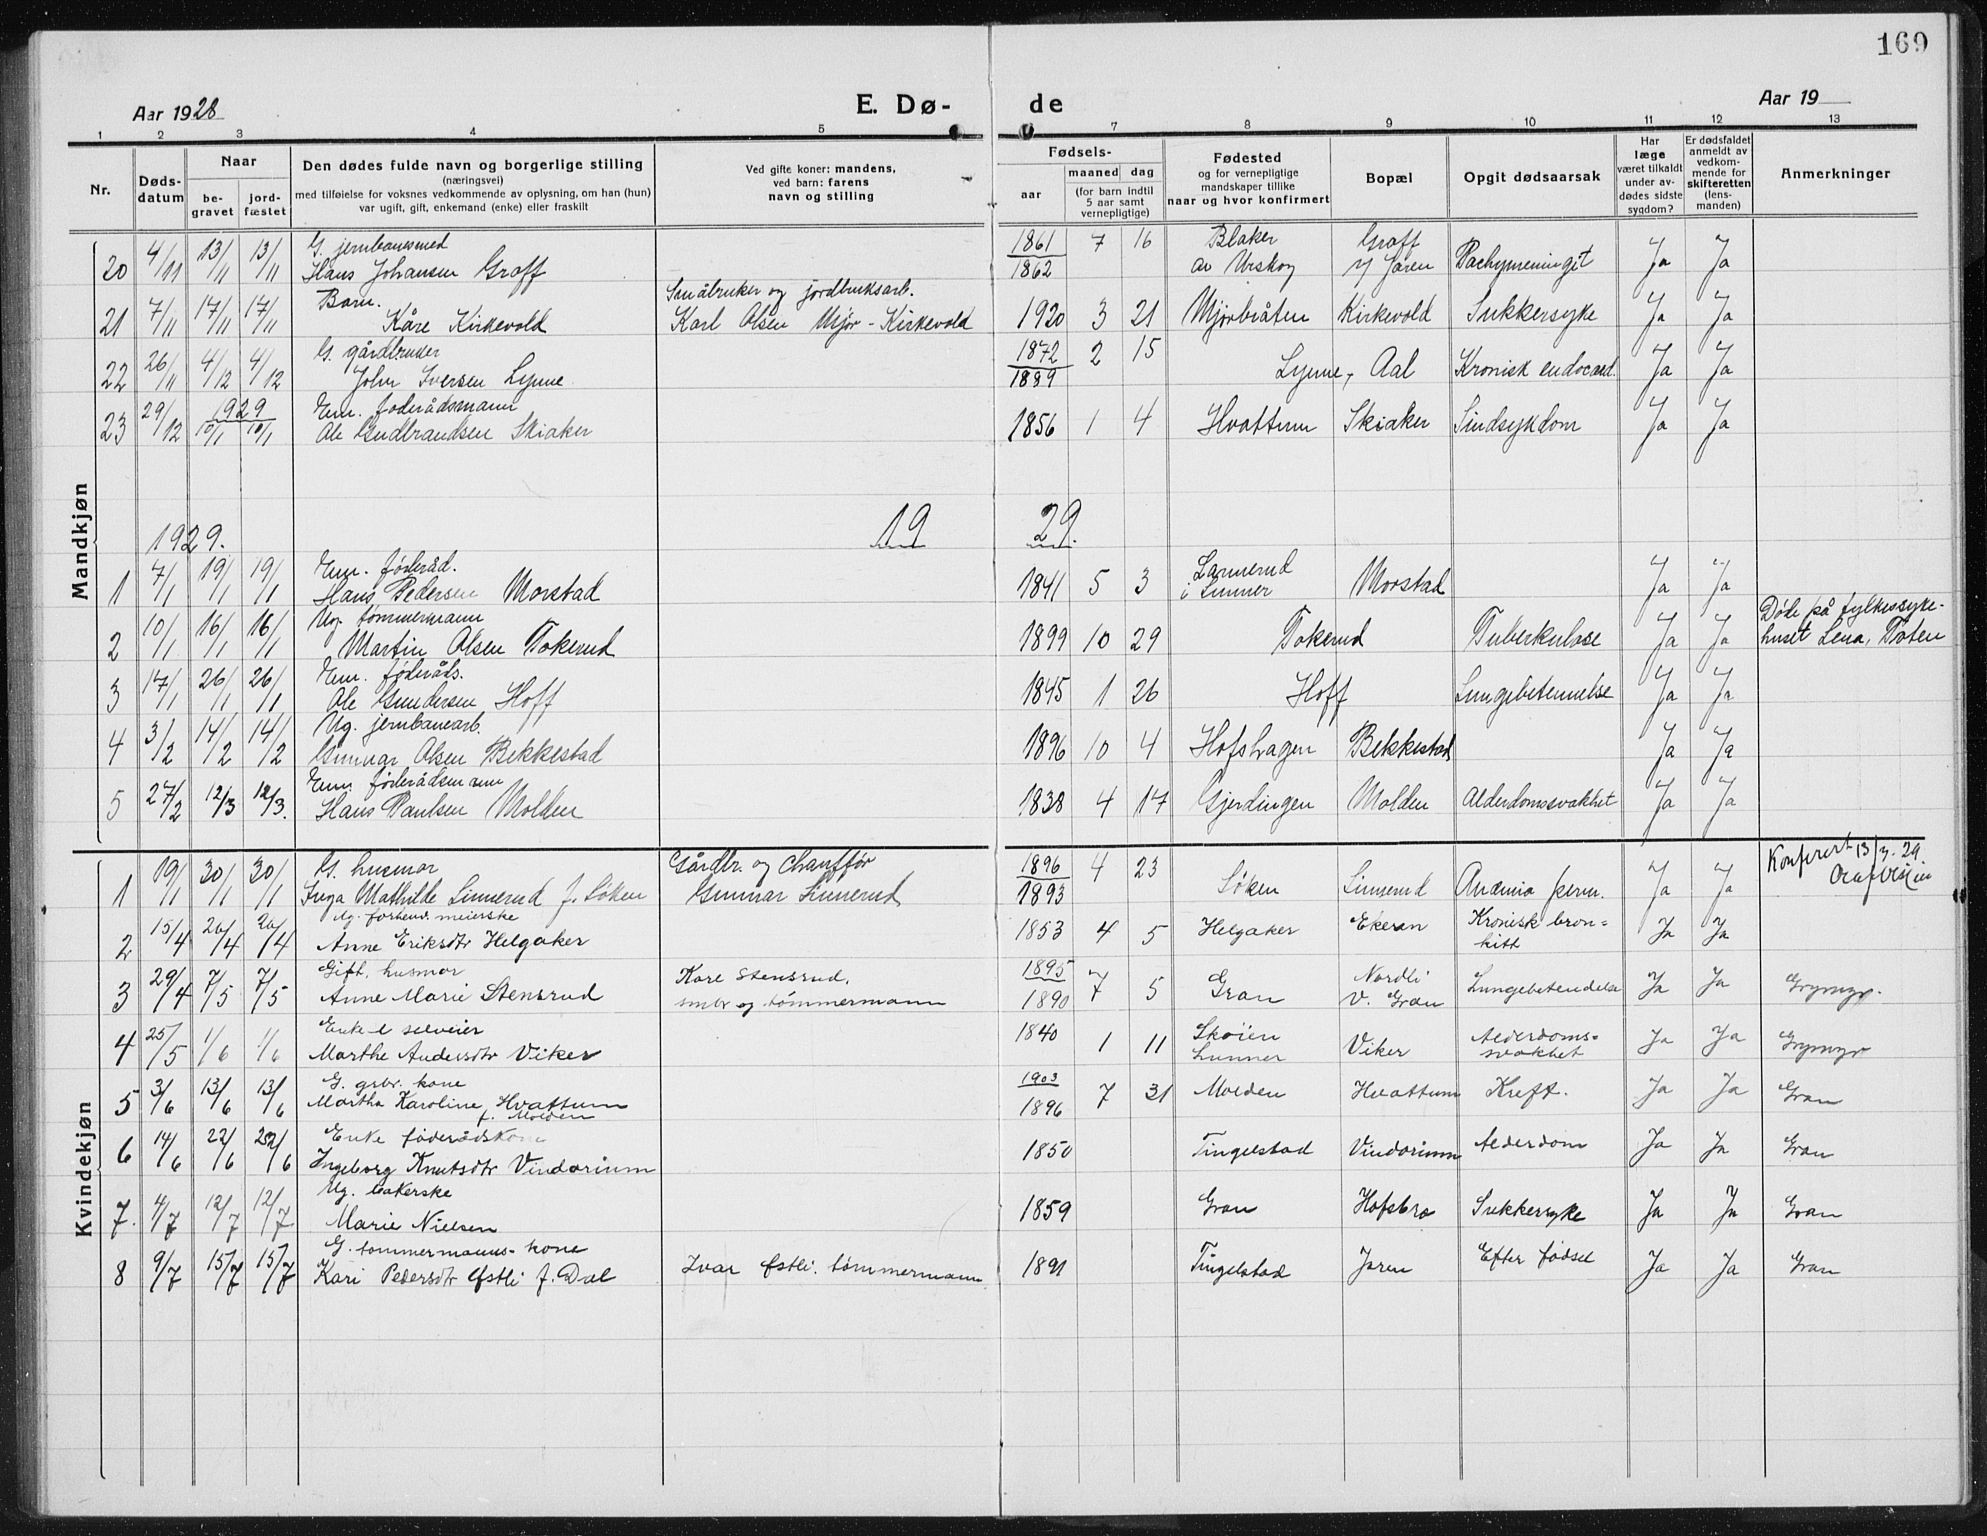 169
Aar 1928
E. Dø-
de
Aar 19
1 2 3 4 5 7 8 9 10 11 12 13
Nr.
Døds-
datum
Naar
be-
gravet
jord-
fæstet
Den dødes fulde navn og borgerlige stilling
(næringsvei)
med tilføielse for voksnes vedkommende av oplysning, om han (hun)
var ugift, gift, enkemand (enke) eller fraskilt
Ved gifte koner: mandens,
ved barn: farens
navn og stilling
Fødsels-
aar
maaned dag
(for barn indtil
5 aar samt
vernepligtige)
Fødested
og for vernepligtige
mandskaper tillike
naar og hvor konfirmert
Bopæl
Opgit dødsaarsak
Har
læge
været tilkaldt
under av-
dødes sidste
sygdom?
Er dødsfaldet
anmeldt av
vedkom-
mende for
skifteretten
(lens-
manden)
Anmerkninger
Mandkjøn
G. jernbanesmed 1861 Blaker Graff
20 4/11 13/11 13/11 Hans Johansen Graff 1862 7 16 av Urskog v/ Jaren Pachymeningit Ja Ja
Barn. Småbruker og jordbruksarb.
21 7/11 17/11 17/11 Kåre Kirkevold Karl Olsen Mjør-Kirkevold 1920 3 21 Mjørbråten Kirkevold Sukkersyke Ja Ja
G. gårdbruker 1872
22 26/11 4/12 4/12 John Iversen Lynne 1889 2 15 Lynne, Aal Kronisk endocard. Ja Ja
1929 Em. foderådsmann
23 29/12 10/1 10/1 Ole Gudbrandsen Skiaker 1856 1 4 Hvattum Skiaker Sindsykdom Ja Ja
1929. 19 29.
Em. føderåd. Lannerud
1 7/1 19/1 19/1 Hans Pedersen Morstad 1841 5 3 i Lunner Morstad Ja Ja
Ug. tømmermann Døde på fylkessyke-
2 10/1 16/1 16/1 Martin Olsen Tokerud 1899 10 29 Tokerud Tuberkulose Ja Ja huset Lena, Toten
Em. føderåds.
3 17/1 26/1 26/1 Ole Gundersen Hoff 1845 1 26 Hoff Lungebetennelse Ja Ja
Ug. jernbanearb.
4 3/2 14/2 14/2 Gunnar Olsen Bekkestad 1896 10 4 Hofshagen Bekkestad Ja Ja
Em. føderådsmann
5 27/2 12/3 12/3. Hans Paulsen Molden 1838 4 17 Gjerdingen Molden Alderdomssvakhet Ja Ja
Kvindekjøn
G. husmor Gårdbr. og chauffør 1896 Konferert 13/3.29.
1 19/1 30/1 30/1 Inga Mathilde Linnerud f. Søken Gunnar Linnerud 1893 4 23 Søken Linnerud Anæmia pern. Ja Ja
Ug. forhenv. meierske Kronisk bron=
2 15/4 20/4 20/4 Anne Eriksdtr Helgaker 1853 4 5 Helgaker Ekeren kitt Ja Ja
Gift, husmor Kare Stensrud, 1895 Nordli
3 29/4 7/5 7/5 Anne Marie Stensrud smbr og tömmermann 1890 7 5 Gran V. Gran Lungebetendelse Ja Ja Grymyr.
Enke e selveier Skoien Alderdoms=
4 25/5 1/6 1/6 Marthe Andersdtr Viker 1840 1 11 Lunner Viker svakhet Ja Ja Grymyr
G. grbr. kone 1903
5 3/6 13/6 13/6 Martha Karoline Hvattum f. Molden 1896 7 31 Molden Hvattum Kreft. Ja Ja Gran
Enke føderådskone
6 14/6 22/6 22/6 Ingeborg Knutsdtr Vindorium 1850 Tingelstad Vindorium Alderdom Ja Ja Gran
Ug. bakerske
7. 4/7 12/7 12/7 Marie Nielsen 1859 Gran Hofsbro Sukkersyke Ja Ja Gran
G. tømmermanns-kone
8 9/7 15/7 15/7 Kari Pedersdtr Østli f. Dal Ivar Østli. tømmermann 1891 Tingelstad Jaren Efter fødsel Ja Ja Gran